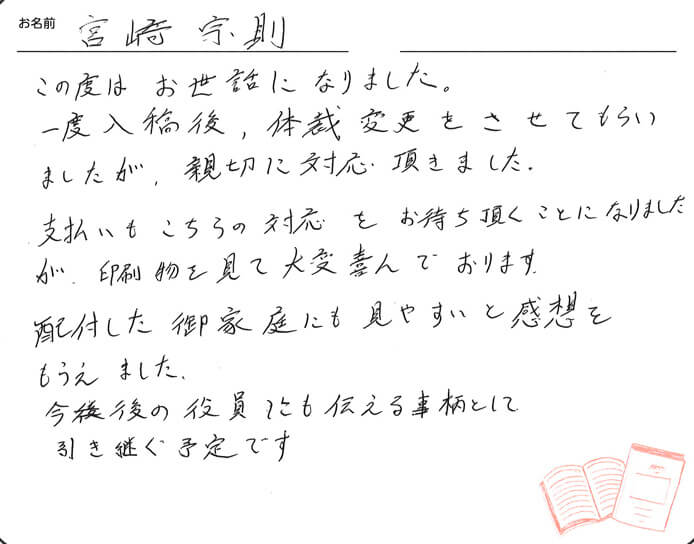 お名前 宮崎 宗則
この度は お世話に なりました。
一度入稿後、体裁変更をさせてもらい
ましたが、親切に対応頂きました.
支払いもこちらの対応をお待ち頂くことになりました
が、印刷物を見て大変喜んでおります.
配付した御家庭にも見やすいと感想を
もらえました.
今後の役員にも伝える事柄として
引き継ぐ予定です